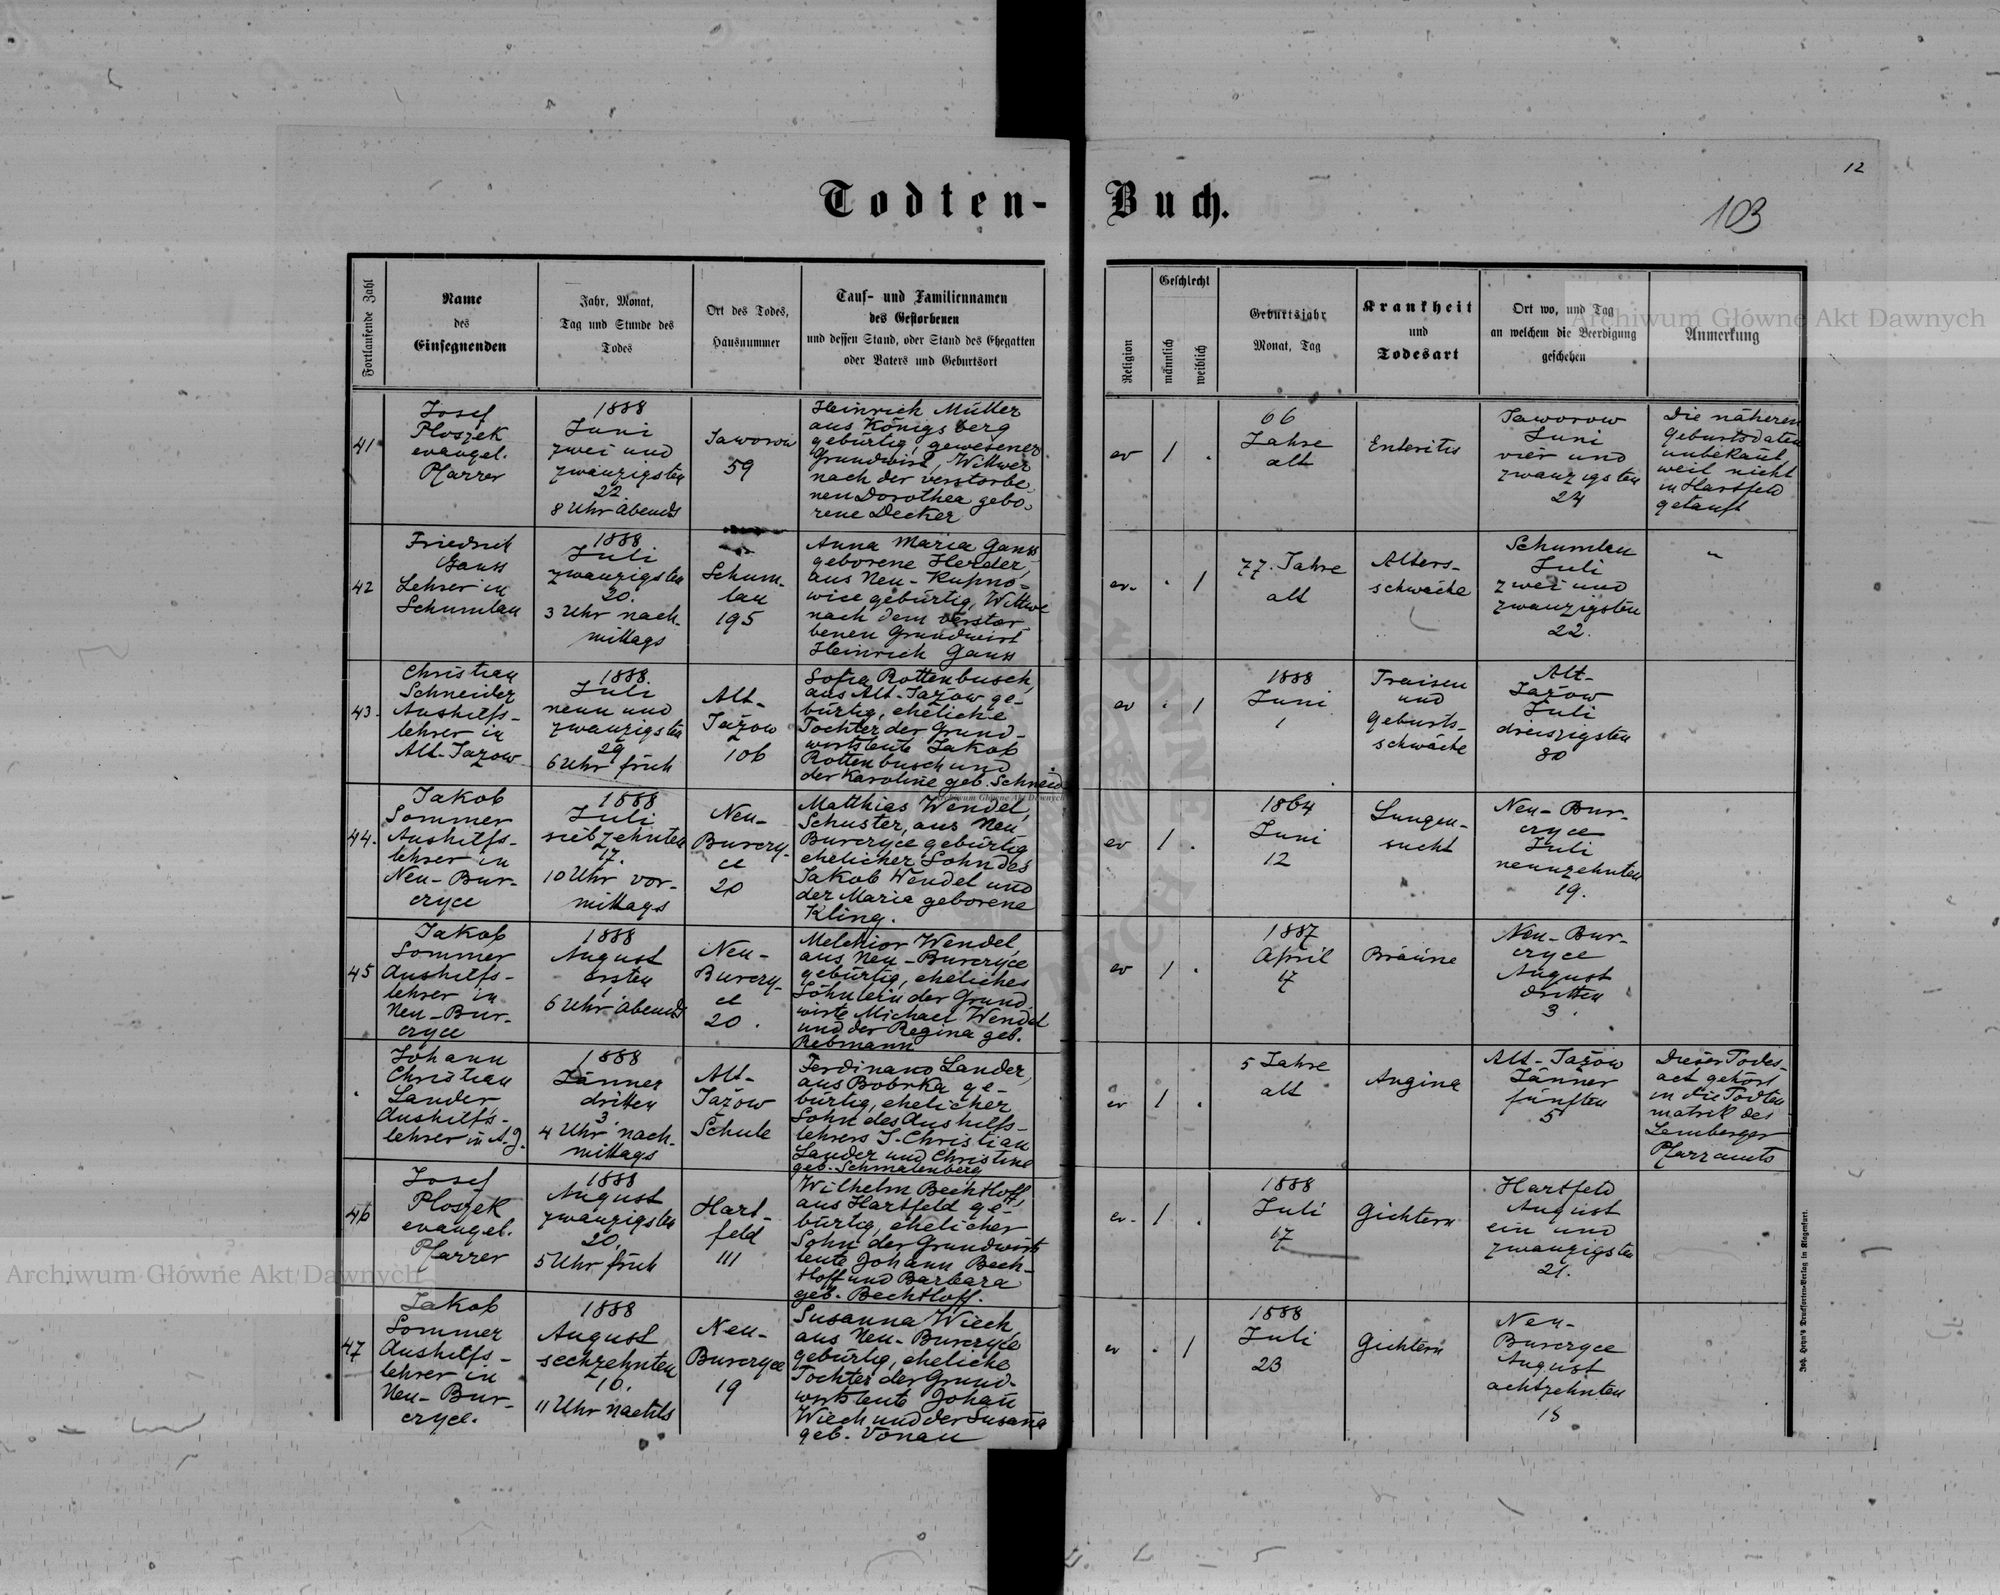 12
Todten-Buch.
103
Fortlaufende Zahl
Name
des
Einsegnenden
Jahr, Monat,
Tag und Stunde des
Todes
Ort des Todes,
Hausnummer
Tauf- und Familiennamen
des Gestorbenen
und dessen Stand, oder Stand des Ehegatten
oder Vaters und Geburtsort
Religion
Geschlecht
männlich
weiblich
Geburtsjahr
Monat, Tag
Krankheit
und
Todesart
Ort wo, und Tag
an welchem die Beerdigung
geschehen
Anmerkung
41
Josef
Ploszek
evangel.
Pfarrer
1888
Juni
zwei und
zwanzigsten
22.
8 Uhr Abends
Jaworow
59
Heinrich Müller
aus Königsberg
gebürtig, gewesener
Grundwirt, Wittwer
nach der verstorbe-
nen Dorothea gebo-
rene Decker
ev
1
.
66
Jahre
alt
Enteritis
Jaworow
Juni
vier und
zwanzigsten
24
Die näheren
Geburtsdaten
unbekannt
weil nicht
in Hartfeld
getauft
42
Friedrich
Gauss
Lehrer in
Schumlau
1888
Juli
zwanzigsten
20.
3 Uhr nach-
mittags
Schum-
lau
195
Anna Maria Gauss
geborene Herder,
aus Neu-Kupno-
wice gebürtig, Wittwe
nach dem verstor
benen Grundwirt
Heinrich Gauss
ev.
.
1
77 Jahre
alt
Alters-
schwäche
Schumlau
Juli
zwei und
zwanzigsten
22.
"
43.
Christian
Schneider
Aushilfs-
lehrer in
Alt-Jazow
1888.
Juli
neun und
zwanzigsten
29
6 Uhr früh
Alt-
Jażow
106
Sofia Rottenbusch,
aus Alt-Jażow ge-
bürtig, eheliche
Tochter der Grund-
wirtsleute Jakob
Rottenbusch und
der Karoline geb. Schneid
ev
.
1
1888
Juni
1
Fraisen
und
Geburts-
schwäche
Alt-
Jażow
Juli
dreiszigsten
30
44.
Jakob
Sommer
Aushilfs-
lehrer in
Neu-Bur-
czyce
1888
Juli
siebzehnten
17.
10 Uhr vor-
mittags
Neu-
Burczy-
ce
20
Matthias Wendel,
Schuster, aus Neu-
Burczyce gebürtig
ehelicher Sohn des
Jakob Wendel und
der Maria geborene
Kling.
ev
1
.
1864
Juni
12
Lungen-
sucht
Neu-Bur-
czyce
Juli
neunzehnten
19.
45
Jakob
Sommer
Aushilfs-
lehrer in
Neu-Bur-
czyce
1888
August
ersten
1
6 Uhr Abends
Neu-
Burczy-
ce
20.
Melchior Wendel,
aus Neu-Burczyce
gebürtig, eheliches
Söhnlein der Grund
wirte Michael Wendel
und der Regina geb.
Rebmann
ev
1
.
1887
April
17
Bräune
Neu-Bur-
czyce
August
dritten
3.
.
Johann
Christian
Lander
Aushilfs-
lehrer in A. J.
1888
Jänner
dritten
3.
4 Uhr nach-
mittags
Alt-
Jażow
Schule
Ferdinand Lander,
aus Bobrka ge-
bürtig, ehelicher
Sohn des Aushilfs-
lehrers J. Christian
Lander und Christine
geb. Schmalenberg
ev
1
.
5 Jahre
alt
Angina
Alt-Jażow
Jänner
fünften
5
Dieser Todes-
act gehört
in die Todten
matrik des
Lemberger
Pfarramts
46
Josef
Ploszek
evangel.
Pfarrer
1888
August
zwanzigsten
20.
5 Uhr früh
Hart-
feld
111
Wilhelm Bechtloff,
aus Hartfeld ge-
bürtig, ehelicher
Sohn der Grundwirts
leute Johann Bech-
tloff und Barbara
geb. Bechtloff.
ev.
1
.
1888
Juli
17
Gichtern
Hartfeld
August
ein und
zwanzigsten
21.
47
Jakob
Sommer
Aushilfs-
lehrer in
Neu-Bur-
czyce.
1888
August
sechzehnten
16.
11 Uhr nachts
Neu-
Burczyce
19
Susanna Wiech
aus Neu-Burczyce
gebürtig, eheliche
Tochter der Grund-
wirtsleute Johañ
Wiech und der Susaña
geb. Vonau
ev
.
1
1888
Juli
23
Gichtern
Neu-
Burczyce
August
achtzehnten
18
Joh. Hehn's Drucksorten-Verlag in Klagenfurt.
Archiwum Główne Akt Dawnych
Archiwum Główne Akt Dawnych
Archiwum Główne Akt Dawnych